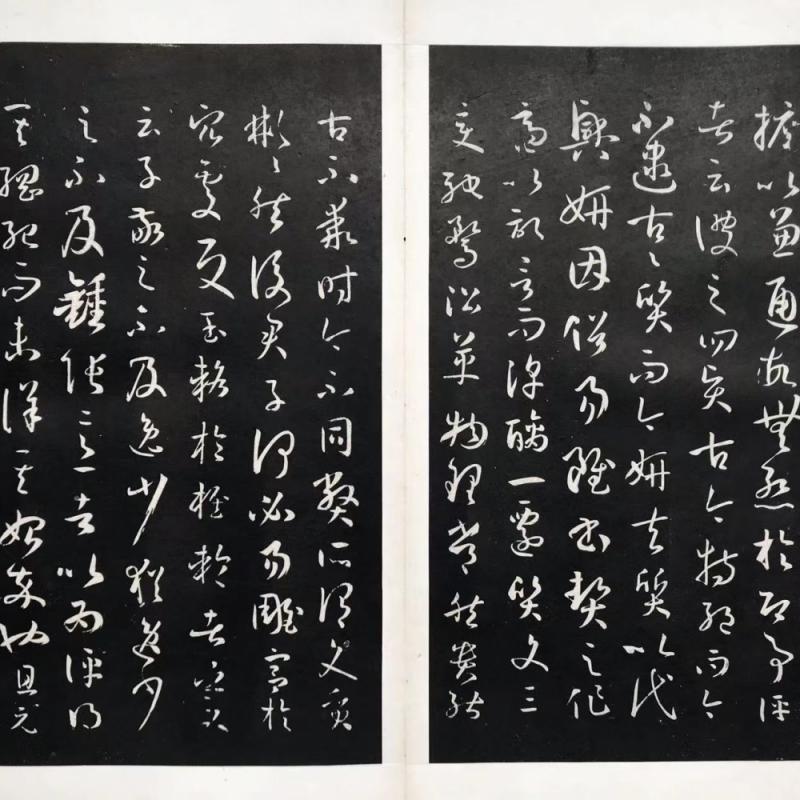 摭以兼通故無慙於即事評
者云彼之四賢古今特絕而今
不逮古古質而今妍夫質以代
興妍因俗易雖書契之作
適以記言而淳醨一遷質文三
變馳鶩沿革物理常然貴能
古不乖時今不同弊所謂文質
彬彬然後君子何必易雕宮於
穴處反玉輅於椎輪者乎又
云子敬之不及逸少猶逸少
之不及鍾張意者以為評得
其綱紀而未詳其始卒也且元